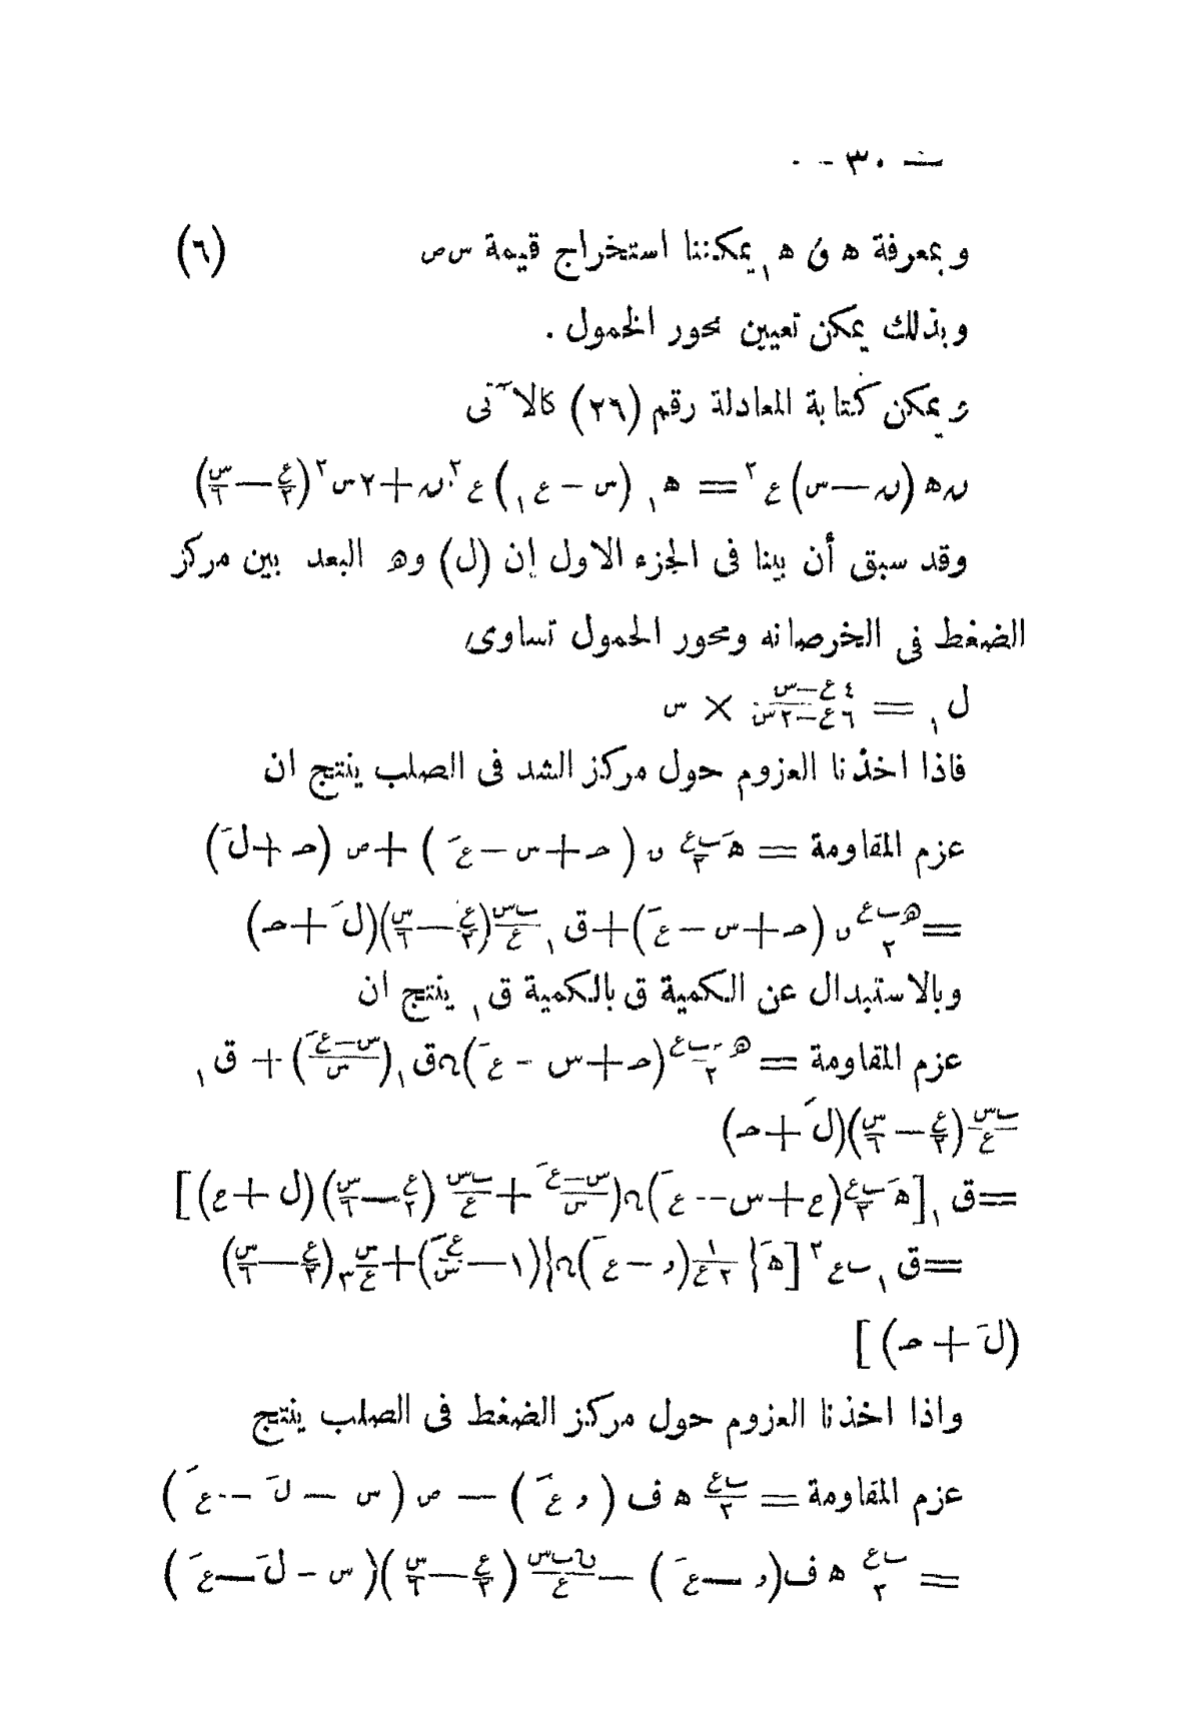 — ٣٠ —
وبمعرفة ه ى ه١ يمكننا استخراج قيمة س ص (٦)
وبذلك يمكن تعيين محور الخمول .
ويمكن كتابة المعادلة رقم (٢٦) كالآتى
ن ه (ن — س) ع ٢ = ه١ (س – ع١) ع ٢ ن + ٢ س ٢ (ع/٢ — س/٦)
وقد سبق أن بينا فى الجزء الاول إن (ل) وه البعد بين مركز
الضغط فى الخرصانه ومحور الحمول تساوى
ل١ = ٤ع–س/٦ع–٢س × س
فاذا اخذنا العزوم حول مركز الشد فى الصلب ينتج ان
عزم المقاومة = هَ ب ع/٢ ں (حـ + س – عَ) + ص (حـ + لَ)
= ه ب ع/٢ ں (حـ + س – عَ) + ق١ ب س/ع (ع/٢ — س/٦)(لَ + حـ)
وبالاستبدال عن الكمية ق بالكمية ق١ ينتج ان
عزم المقاومة = ه ب ع/٢ (حـ + س – عَ) ں ق١ (س–عَ/س) + ق١
ب س/ع (ع/٢ – س/٦)(لَ + حـ)
= ق١ [هَ ب ع/٢ (ع + س – عَ) ں (س–عَ/س + ب س/ع (ع/٢ — س/٦)(ل + ع)]
= ق١ ب ع ٢ [هَ { ١/٢ع (د – عَ) ں } (١ – عَ/س) + س/ع٣ (ع/٢ — س/٦)
(لَ + حـ)]
واذا اخذنا العزوم حول مركز الضغط فى الصلب ينتج
عزم المقاومة = ب ع/٢ ه ف (د عَ) — ص (س – لَ – عَ)
= ب ع/٢ ه ف (د — عَ) — ں ب س/ع (ع/٢ — س/٦)(س – لَ — عَ)